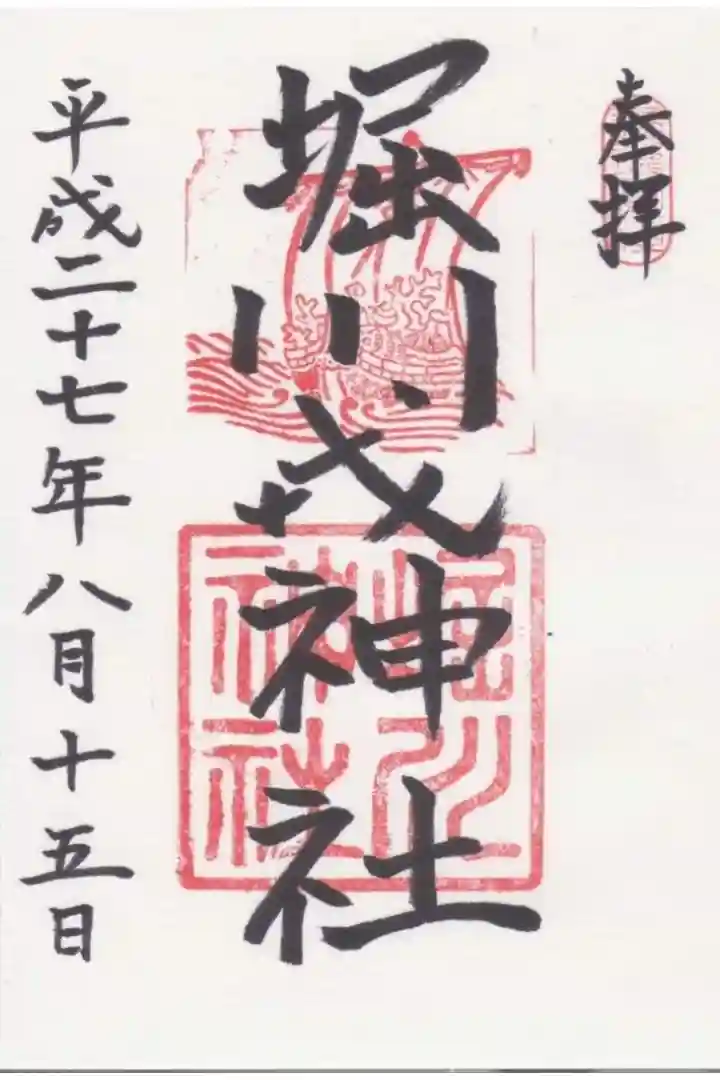 奉拝
堀川戎神社
堀川神社
平成二十七年八月十五日